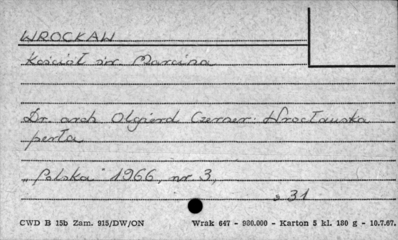 WROCŁAW
Kościół św. Marcina
Dr. arch Olgierd Czerner: Wrocławska
perła
„Polska" 1966, nr 3,
s 31
CWD B 15b Zam. 915/DW/ON Wrak 647 - 900.000 - Karton 5 kl. 180 g - 10.7.67.